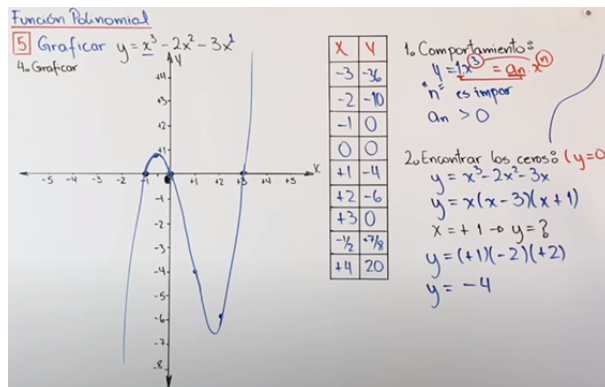 Función Polinomial
5 Graficar y = x³ - 2x² - 3x¹
4. Graficar
Y
+4
+2
+1
-5 -4 -3 -2 -1 +1 +2 +3 +4 +5 X
-1
-2
-3
-4
-5
-6
-7
-8
X Y
-3 -36
-2 -10
-1 0
0 0
+1 -4
+2 -6
+3 0
-1/2 +7/8
+4 20
1. Comportamiento:
y = 1x³ = an · xⁿ
"n" es impar
an > 0
2. Encontrar los ceros: (y=0
y = x³ - 2x² - 3x
y = x(x - 3)(x + 1)
x = +1 → y = ?
y = (+1)(-2)(+2)
y = -4